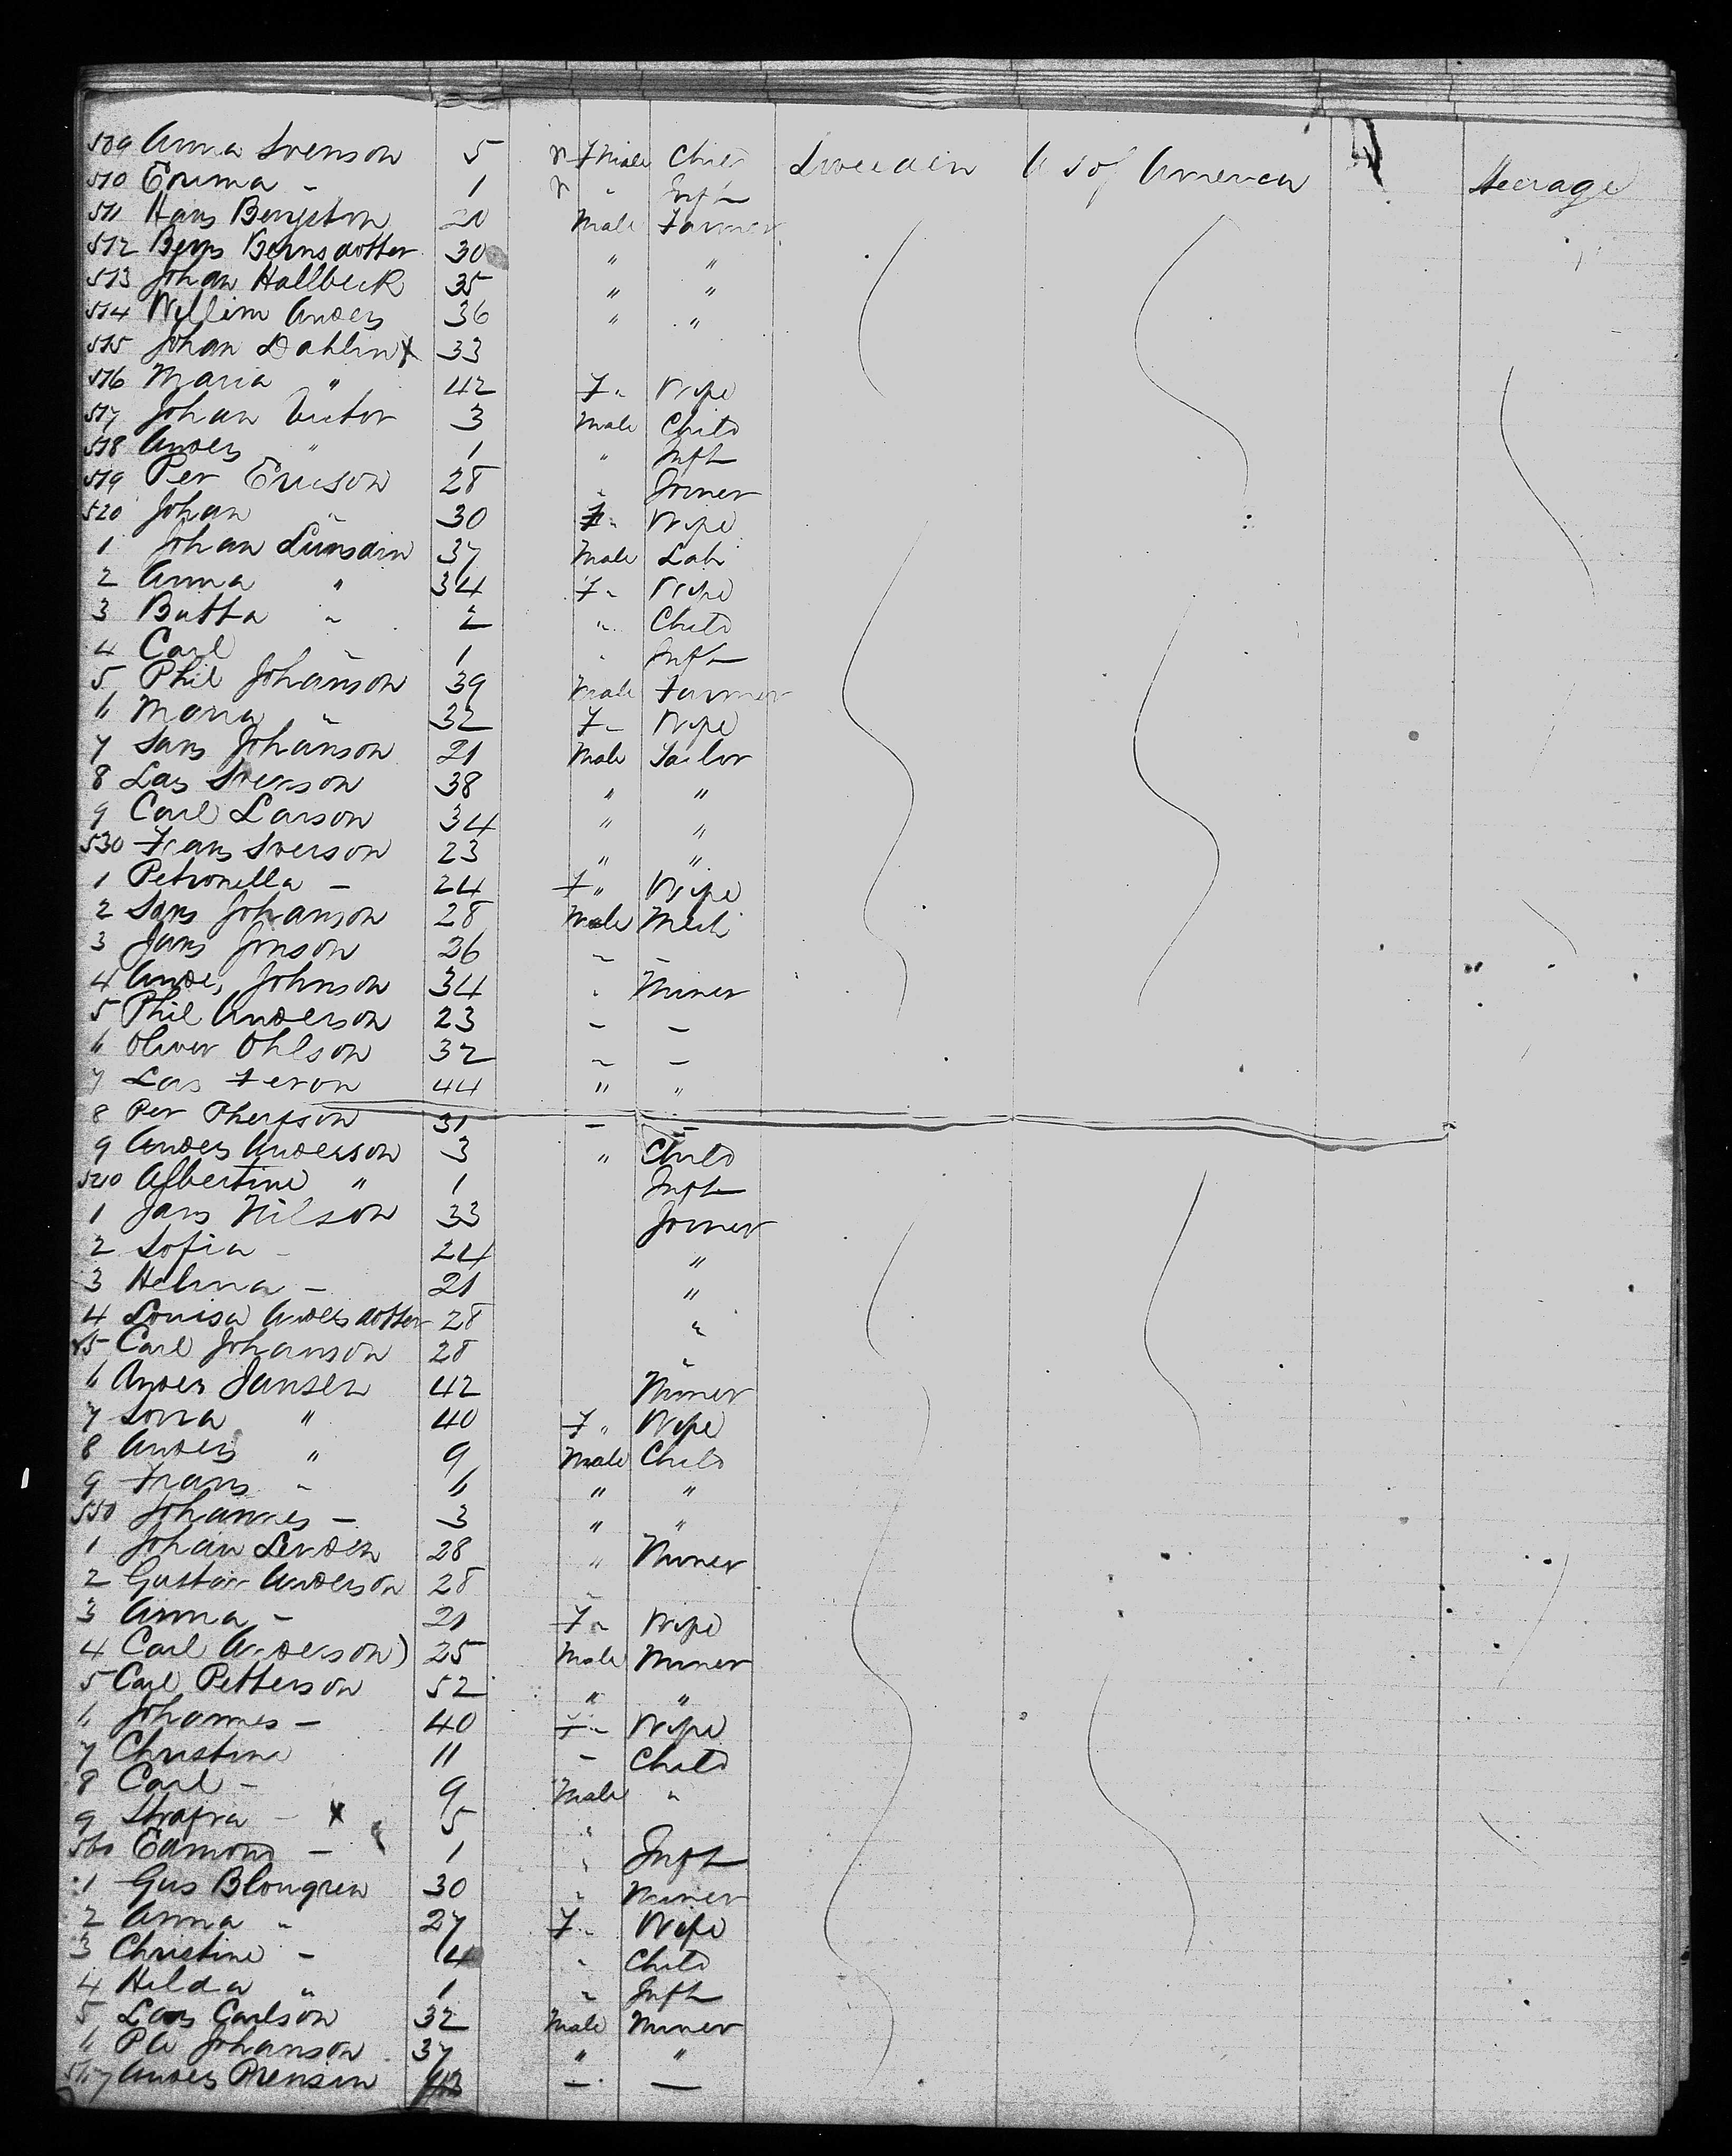 509 Anna Svenson 5 Fmale Child Sweeden U S of America Steerage
510 Emma - 1 " Inft
511 Hans Bengtson 20 Male Farmer
512 Berns Bernsdotter 30 " "
513 Johan Hallbeck 35 " "
514 Willim Anders 36 " "
515 Johan Dahlin x 33
516 Maria " 42 F " Wife
517 Johan Victor 3 Male Child
518 Anders " 1 " Inft
519 Per Ericson 28 " Joiner
520 Johan " 30 F " Wife
1 Johan Lunsdin 37 Male Lab
2 Anna " 34 F " Wife
3 Butta " 2 " Child
4 Carl " 1 " Inft
5 Phil Johanson 39 Male Farmer
6 Maria " 32 F " Wife
7 Sans Johanson 21 Male Tailor
8 Las Svenson 38 " "
9 Carl Larson 34 " "
530 Frans Sverson 23 " "
1 Petronella - 24 F " Wife
2 Sans Johanson 28 Male Mech
3 Jans Jonson 26 " -
4 Ander, Johnson 34 " Miner
5 Phil Anderson 23 - -
6 Oliver Ohlson 32 " -
7 Las Feron 44 " "
8 Per 31 - -
9 Anders Anderson 3 " Child
540 Albertine " 1 Inft
1 Jans Nilson 33 Joiner
2 Sofia - 24 "
3 Helma - 21 "
4 Louisa Andersdotter 28 "
5 Carl Johanson 28 "
6 Anders Jansen 42 Miner
7 Sona " 40 F " Wife
8 Anders " 9 Male Child
9 Frans " 6 " "
550 Johannes - 3 " "
1 Johan Linden 28 " Miner
2 Gustav Anderson 28 "
3 Anna - 21 F " Wife
4 Carl Anderson) 25 Male Miner
5 Carl Petterson 52 " "
6 Johannes - 40 F " Wife
7 Christine 11 - Child
8 Carl - 9 Male "
9 - x 5 "
560 Edmond - 1 " Inft
1 Gus Blongren 30 " Miner
2 Anna " 27 F " Wife
3 Christine - 4 " Child
4 Hilda " 1 " Inft
5 Lars Carlson 32 Male Miner
6 PA Johanson 37 " "
567 Anders - -